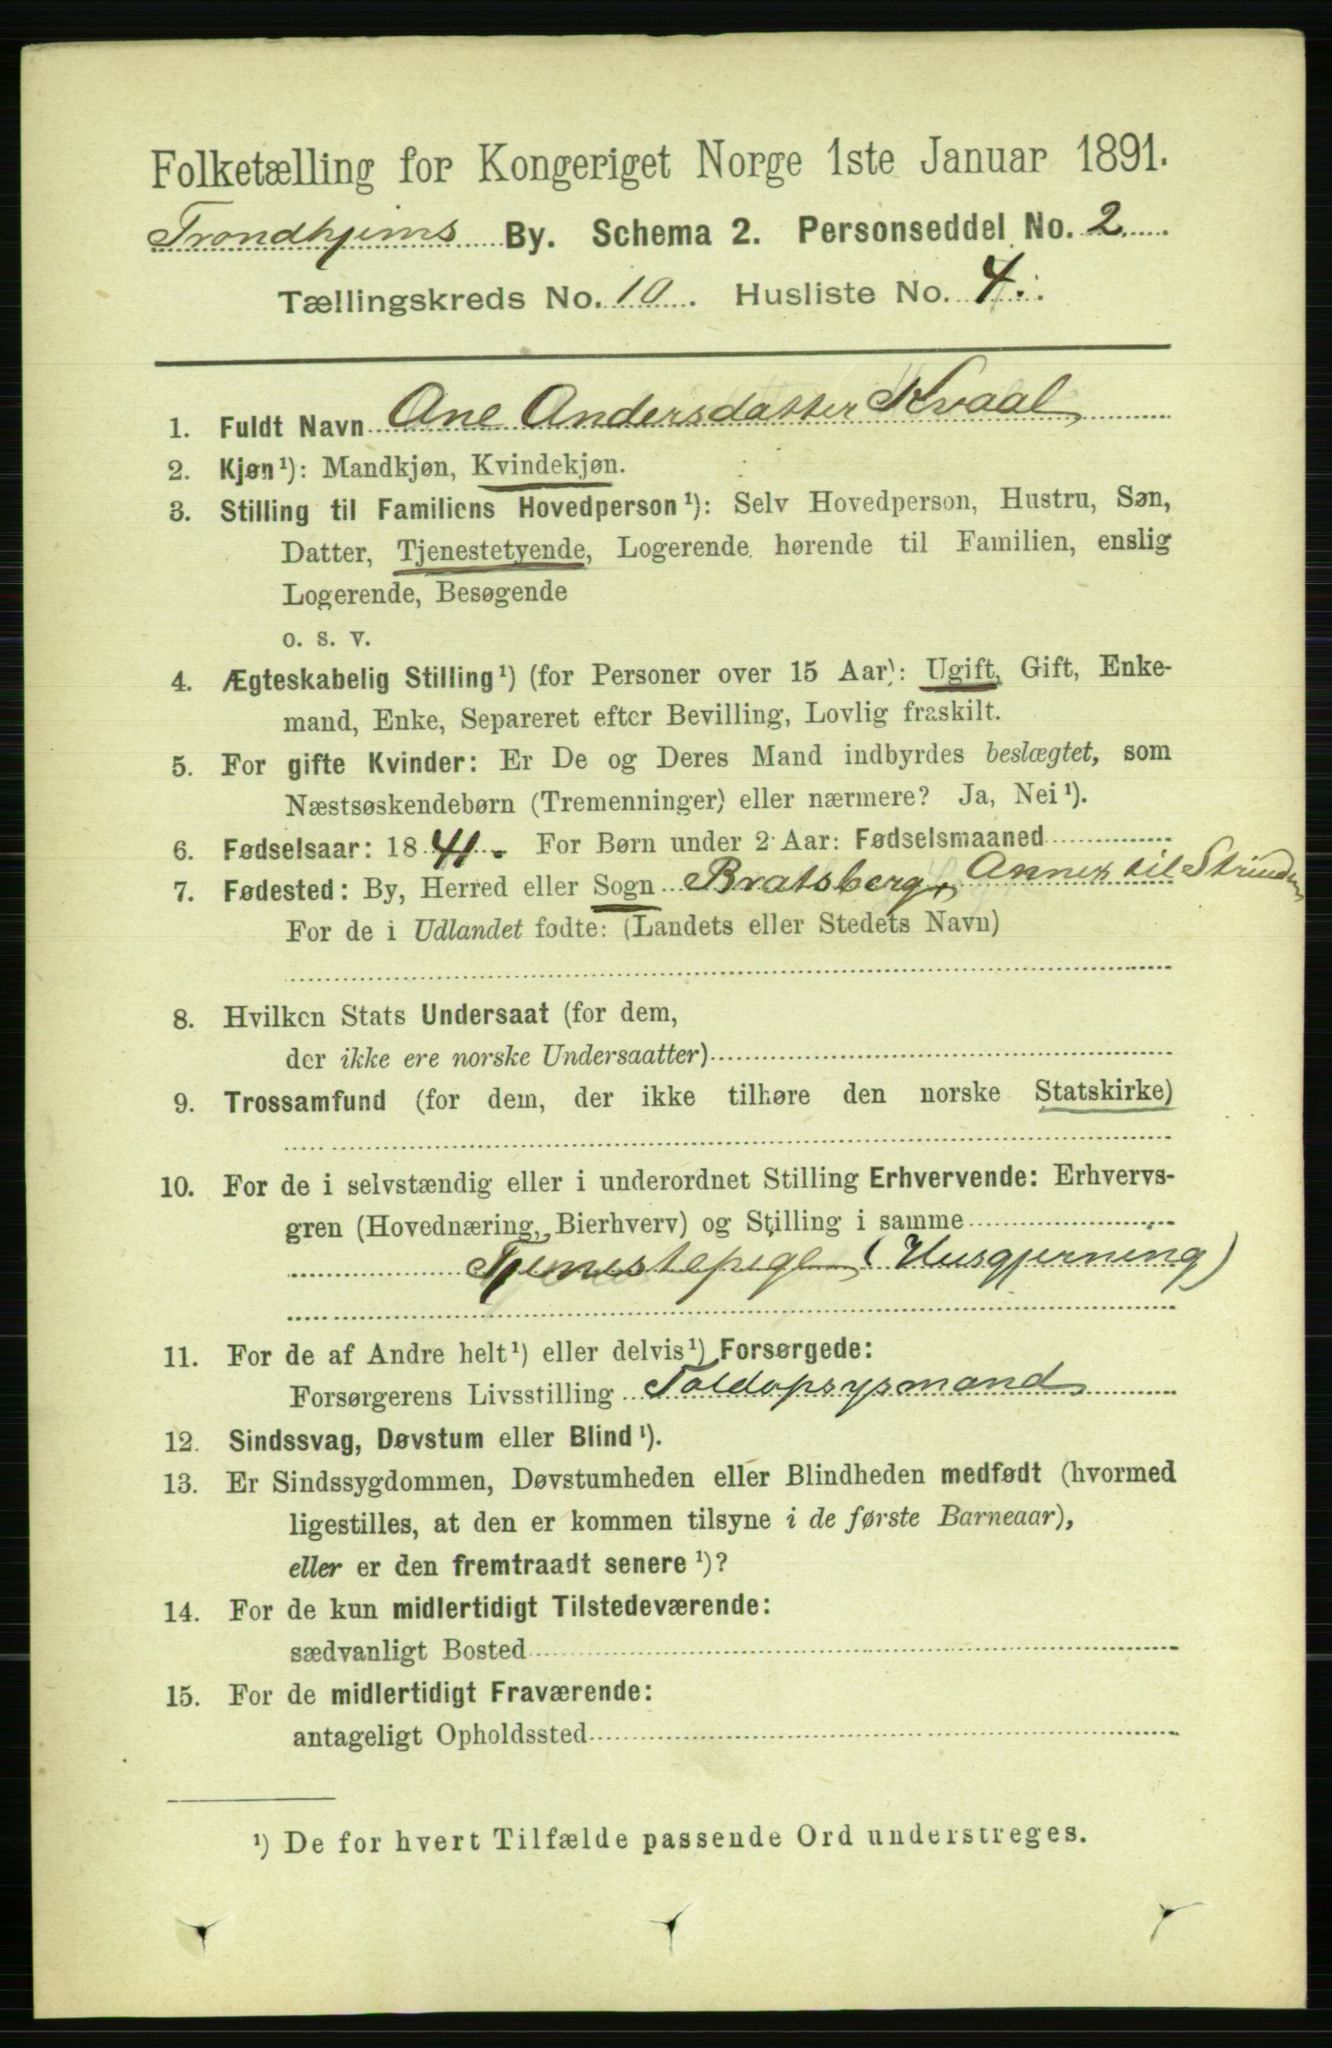 Folketælling for Kongeriget Norge 1ste Januar 1891.
Trondhjems By. Schema 2. Personseddel No. 2
Tællingskreds No. 10. Husliste No. 4.
1. Fuldt Navn Ane Andersdatter Kvaal
2. Kjøn¹): Mandkjøn, Kvindekjøn.
3. Stilling til Familiens Hovedperson¹): Selv Hovedperson, Hustru, Søn,
Datter, Tjenestetyende, Logerende hørende til Familien, enslig
Logerende, Besøgende
o. s. v.
4. Ægteskabelig Stilling¹) (for Personer over 15 Aar): Ugift, Gift, Enke-
mand, Enke, Separeret efter Bevilling, Lovlig fraskilt.
5. For gifte Kvinder: Er De og Deres Mand indbyrdes beslægtet, som
Næstsøskendebørn (Tremenninger) eller nærmere? Ja, Nei¹).
6. Fødselsaar: 1841. For Børn under 2 Aar: Fødselsmaaned
7. Fødested: By, Herred eller Sogn Bratsberg, Annex til Strinden
For de i Udlandet fødte: (Landets eller Stedets Navn)
8. Hvilken Stats Undersaat (for dem,
der ikke ere norske Undersaatter)
9. Trossamfund (for dem, der ikke tilhøre den norske Statskirke)
10. For de i selvstændig eller i underordnet Stilling Erhvervende: Erhvervs-
gren (Hovednæring, Bierhverv) og Stilling i samme
Tjenestepige (Husgjerning)
11. For de af Andre helt¹) eller delvis¹) Forsørgede:
Forsørgerens Livsstilling Toldopsysmand
12. Sindssvag, Døvstum eller Blind¹).
13. Er Sindssygdommen, Døvstumheden eller Blindheden medfødt (hvormed
ligestilles, at den er kommen tilsyne i de første Barneaar),
eller er den fremtraadt senere¹)?
14. For de kun midlertidigt Tilstedeværende:
sædvanligt Bosted
15. For de midlertidigt Fraværende:
antageligt Opholdssted
¹) De for hvert Tilfælde passende Ord understreges.